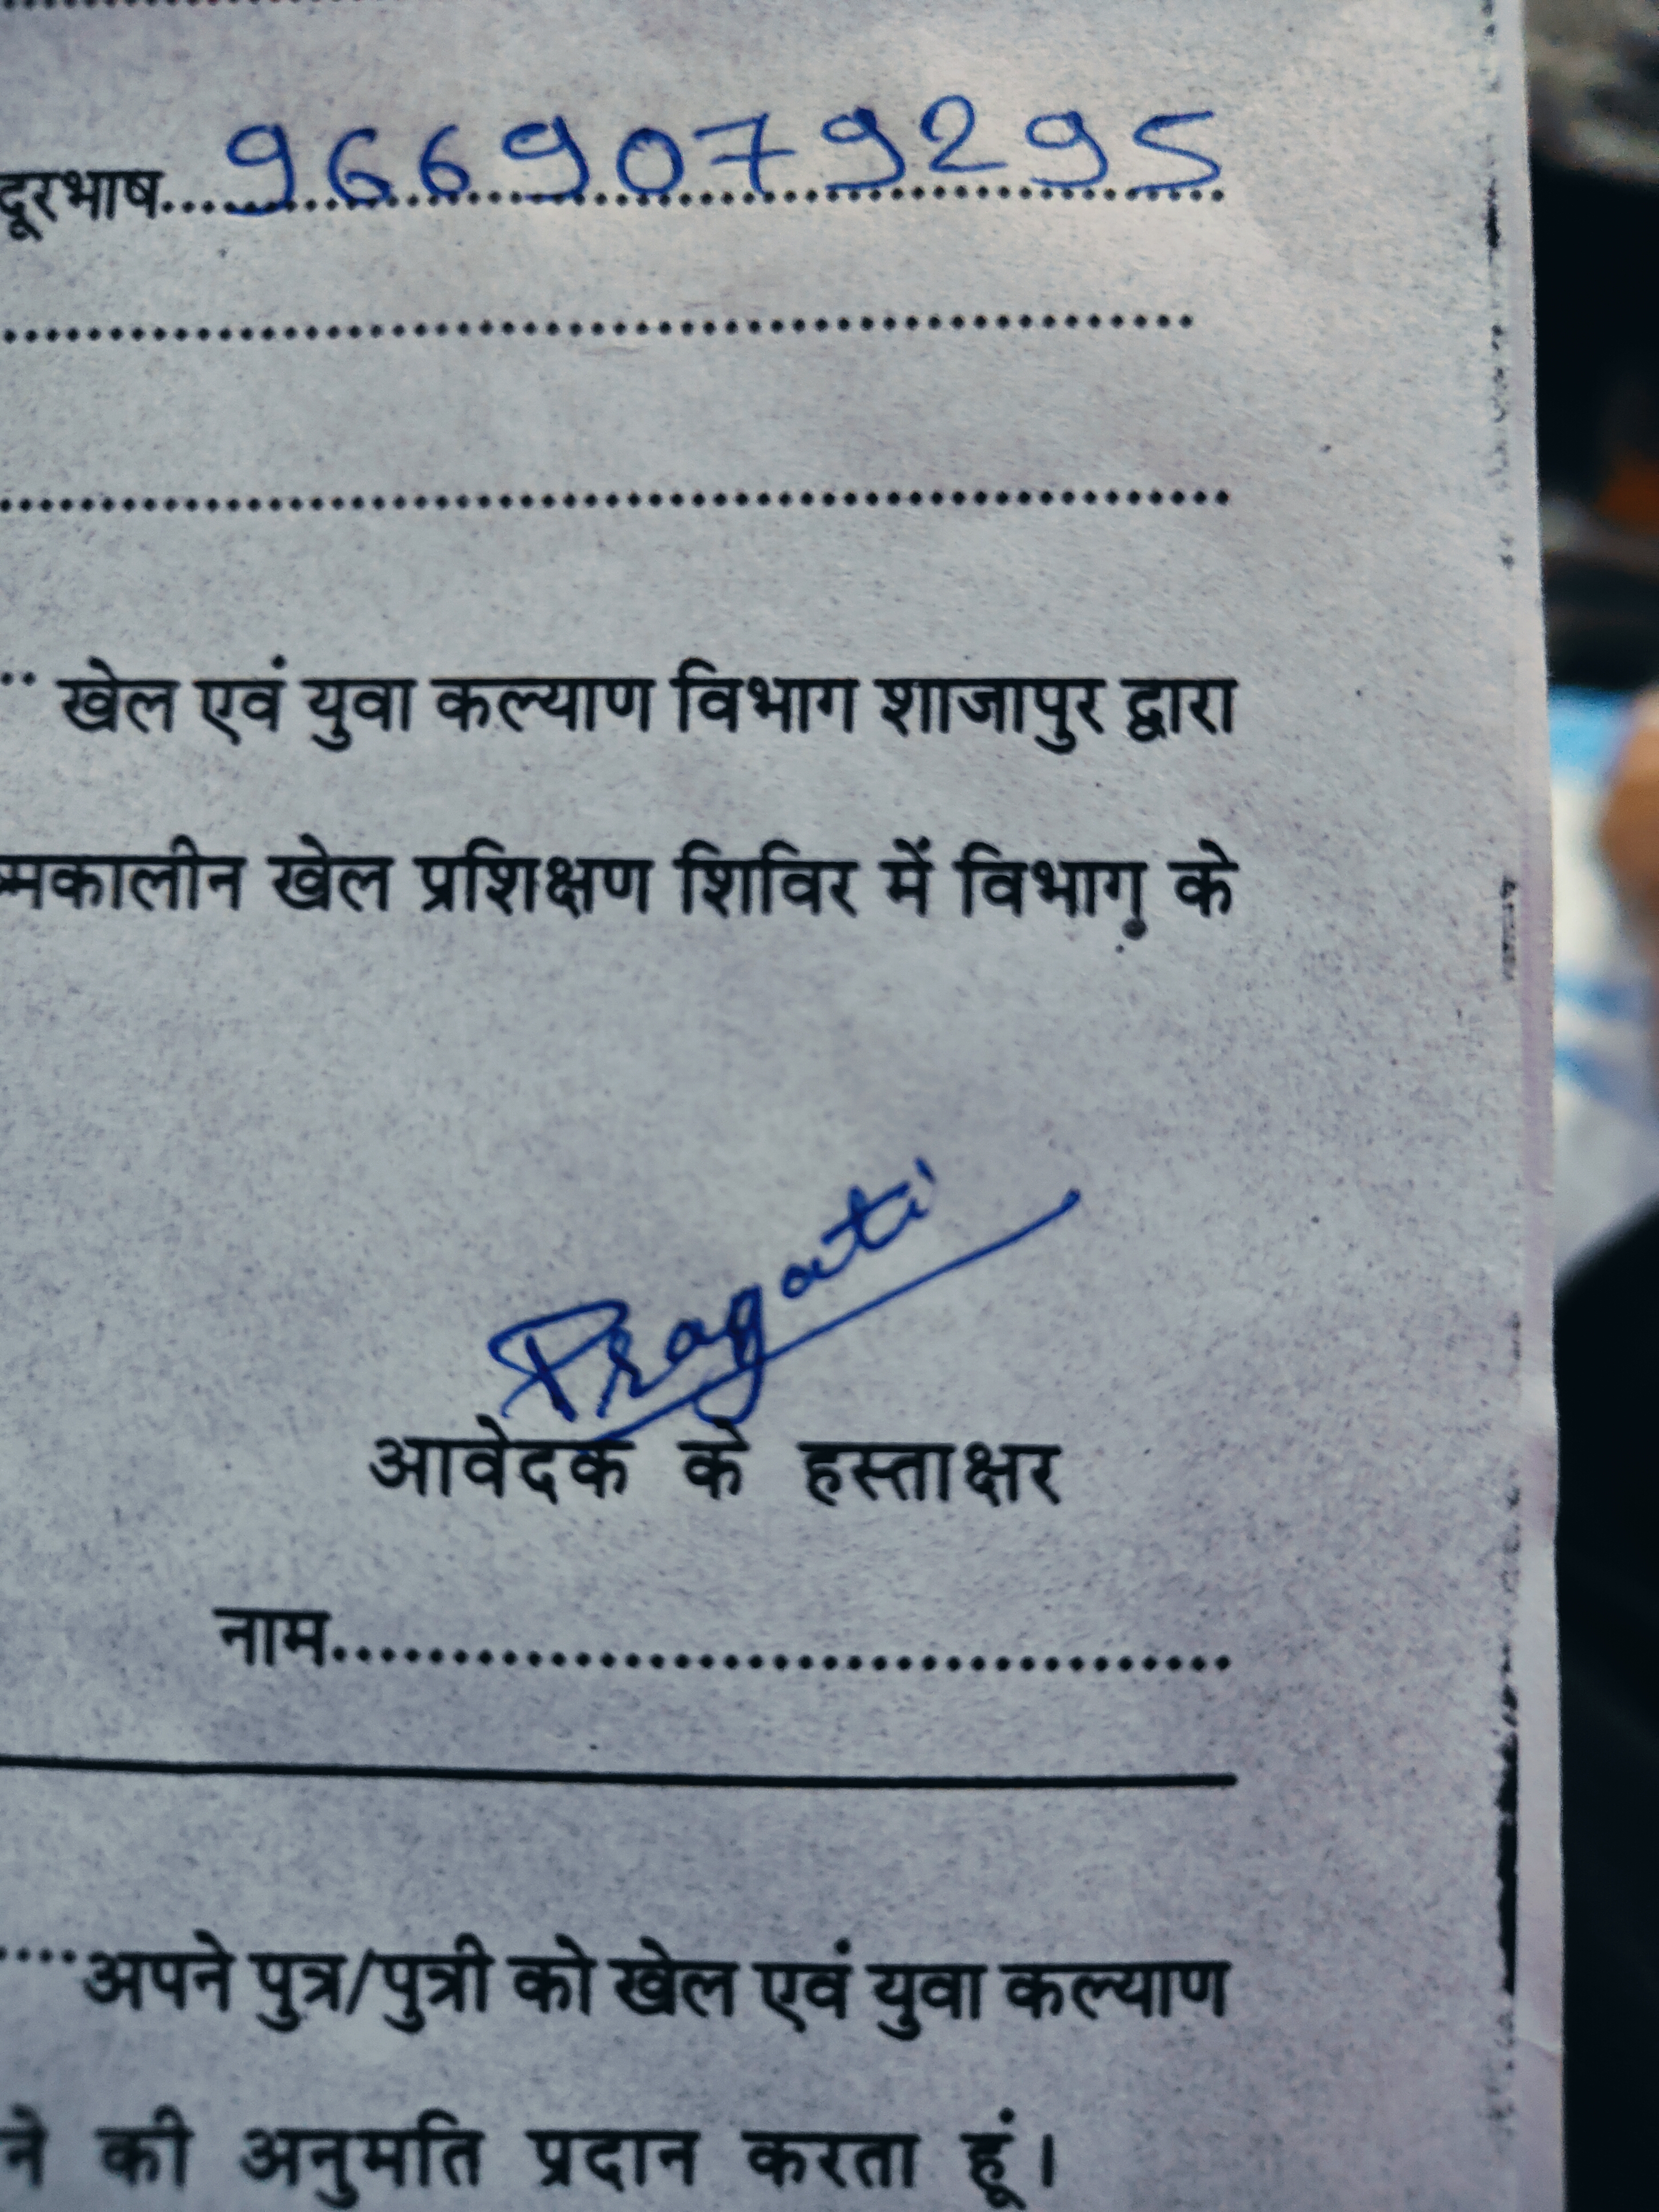 दूरभाष....9669079295
खेल एवं युवा कल्याण विभाग शाजापुर द्वारा
खेल प्रशिक्षण शिविर में विभाग के
Pragati
आवेदक के हस्ताक्षर
नाम....................................
अपने पुत्र/पुत्री को खेल एवं युवा कल्याण
की अनुमति प्रदान करता हूं।